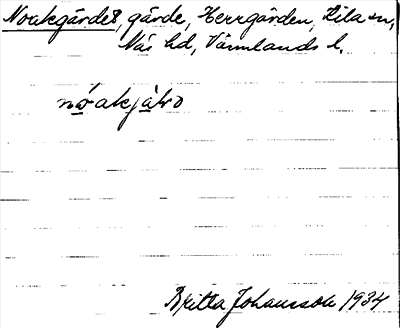 Noakgärdet, gärde, Herrgården, Kila sn,
Näs hd, Värmlands l.
Britta Johansson 1934